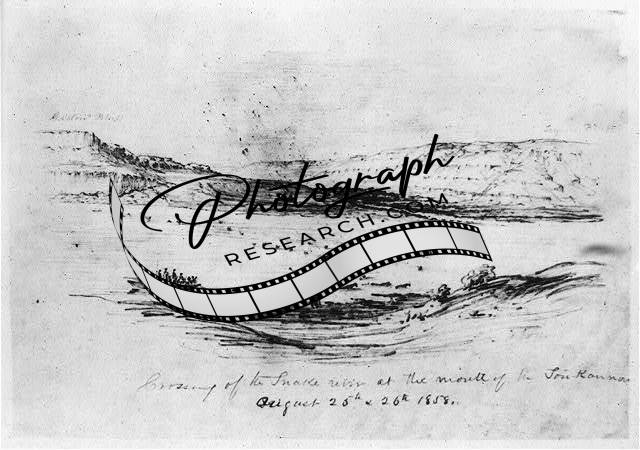 Photograph
RESEARCH.COM
Crossing of the Snake river at the mouth of the Toukannon
August 25th & 26th 1858.